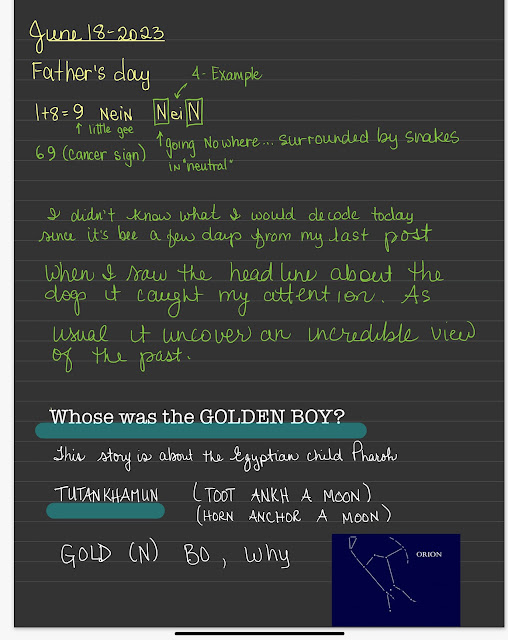 June 18-2023
Father's day
4- Example
1+8=9 NeiN NeiN
↑ little gee
69 (Cancer sign)
↑ going Nowhere... surrounded by snakes
IN "neutral"
I didn't know what I would decode today
since it's bee a few days from my last post
When I saw the headline about the
dogs it caught my attention. As
usual it uncover an incredible view
of the past.
Whose was the GOLDEN BOY?
This story is about the Egyptian child Pharoh
TUTANKHAMUN (TOOT ANKH A MOON)
(HORN ANCHOR A MOON)
GOLD (N) BO, Why
ORION